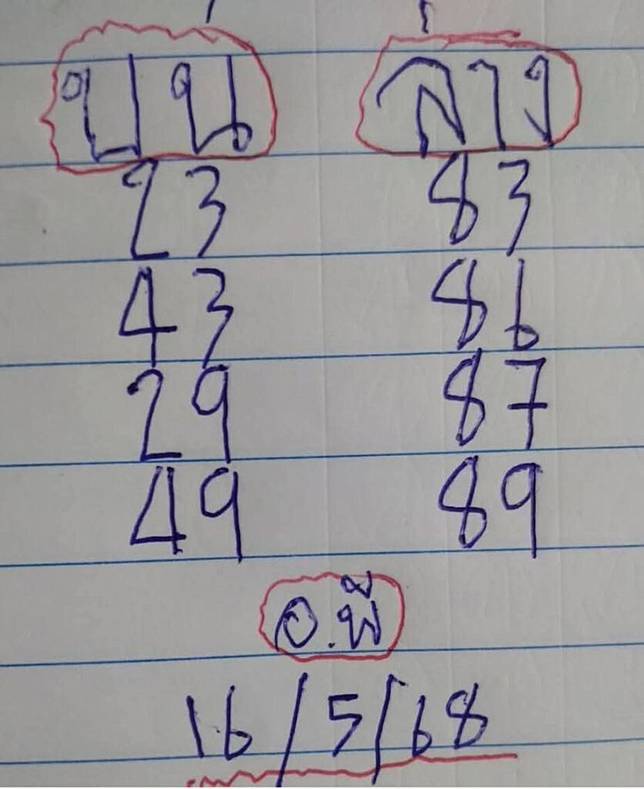 บน ล่าง
23 83
43 86
29 87
49 89
อ.พี
16/5/68